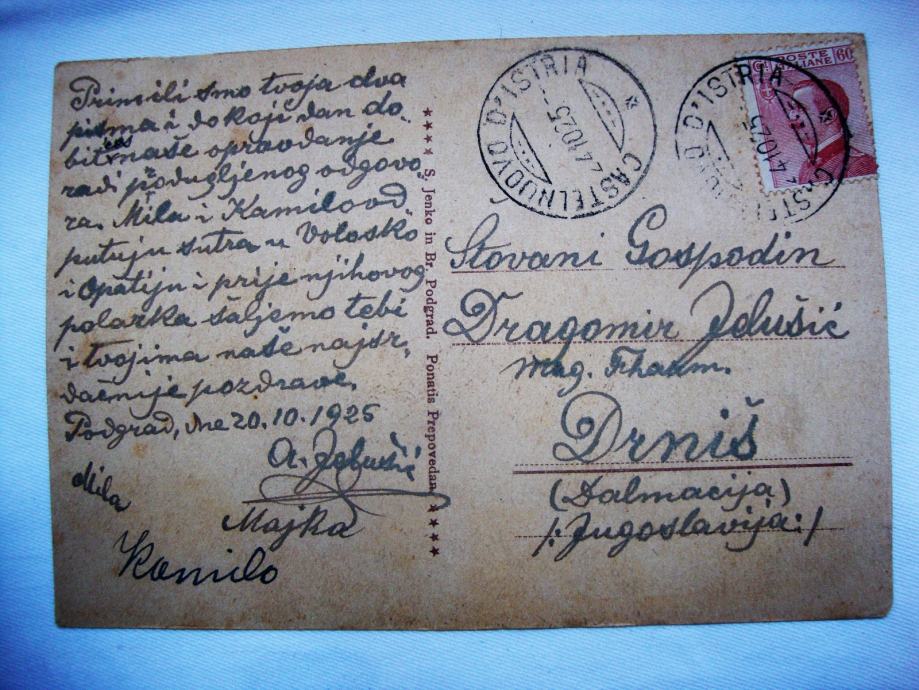 Primili smo tvoja dva
pisma i do koji dan do-
bit ćeš naše opravdanje
radi produgljenog odgovo-
ra. Mila i Kamilo od
putuju sutra u Volosko
i Opatiju i prije njihovog
polazka šaljemo tebi
i tvojima naše najsr-
dačnije pozdrave.
Podgrad, dne 20.10.1925
A. Jelušić
Mila
Majka
Kamilo
★★★★ S. Jenko in Br. Podgrad. Ponatis Prepovedan ★★★★
CASTELNUOVO D'ISTRIA
4.10.25
CASTELNUOVO D'ISTRIA
4.10.25
POSTE ITALIANE
60
Štovani Gospodin
Dragomir Jelušić
mag. Fharm.
Drniš
(Dalmacija)
/:Jugoslavija:/